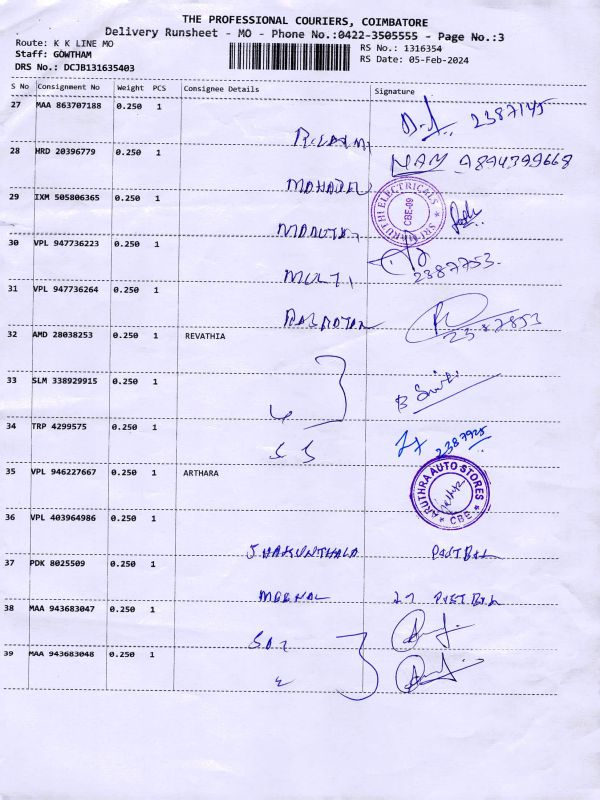 THE PROFESSIONAL COURIERS, COIMBATORE
Delivery Runsheet - MO - Phone No.:0422-3505555 - Page No.:3
Route: K K LINE MO
RS No.: 1316354
Staff: GOWTHAM
RS Date: 05-Feb-2024
DRS No.: DCJB131635403
S No Consignment No Weight PCS Consignee Details Signature
27 MAA 863707188 0.250 1
2387145
28 HRD 20396779 0.250 1
9894399668
MAHADEV
29 IXM 505806365 0.250 1
SRI MARUTHI ELECTRICALS
CBE-09
MARUTHI
30 VPL 947736223 0.250 1
2387753
MULTI
31 VPL 947736264 0.250 1
2387853
32 AMD 28038253 0.250 1 REVATHIA
33 SLM 338929915 0.250 1
34 TRP 4299575 0.250 1
2387925
35 VPL 946227667 0.250 1 ARTHARA
ARUTHRA AUTO STORES
CBE
36 VPL 403964986 0.250 1
SHAKUNTHALA
37 PDK 8025509 0.250 1
38 MAA 943683047 0.250 1
39 MAA 943683048 0.250 1